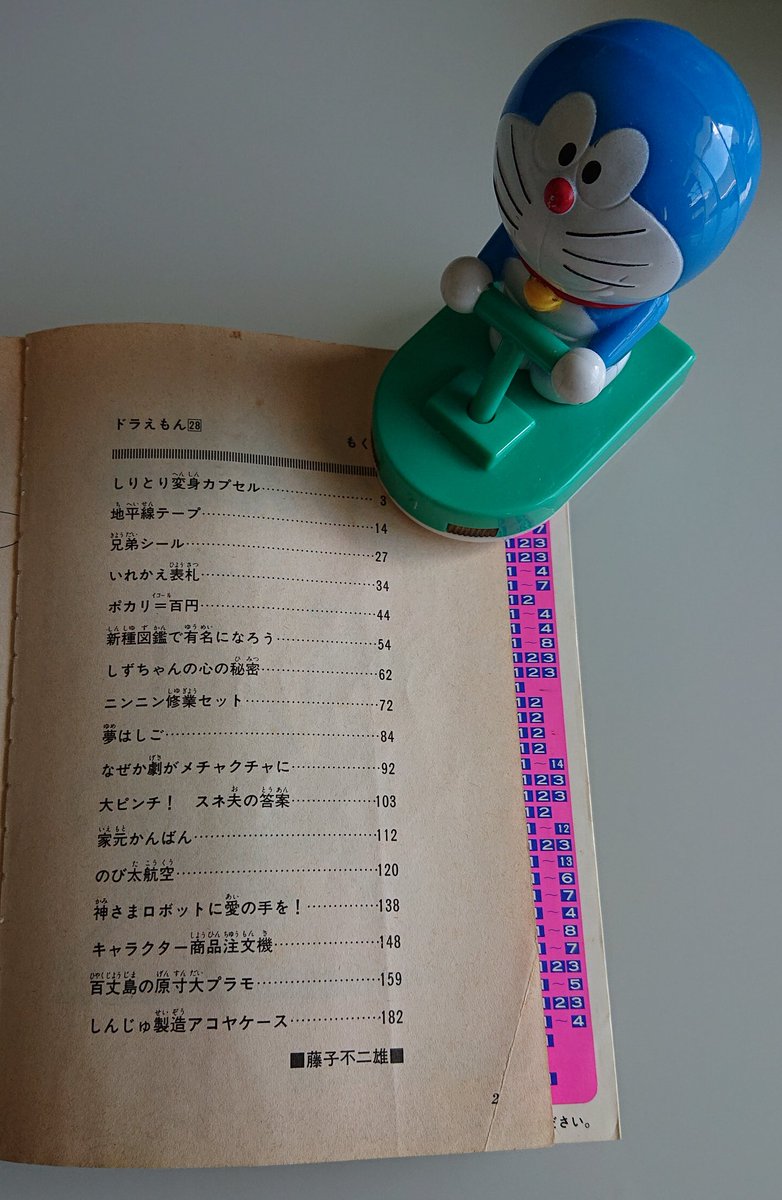 ドラえもん28
もく
しりとり変身カプセル……………3
地平線テープ……………14
兄弟シール……………27
いれかえ表札……………34
ポカリ=百円……………44
新種図鑑で有名になろう……………54
しずちゃんの心の秘密……………62
ニンニン修業セット……………72
夢はしご……………84
なぜか劇がメチャクチャに……………92
大ピンチ! スネ夫の答案……………103
家元かんばん……………112
のび太航空……………120
神さまロボットに愛の手を!……………138
キャラクター商品注文機……………148
百丈島の原寸大プラモ……………159
しんじゅ製造アコヤケース……………182
■藤子不二雄■
2
7
123
123
1~4
1~7
12
1~4
1~4
1~8
123
123
1
12
12
12
12
1~14
123
123
12
1~12
123
1~13
1~6
1~7
1~4
1~8
1~7
123
1~5
123
1~4
ださい。